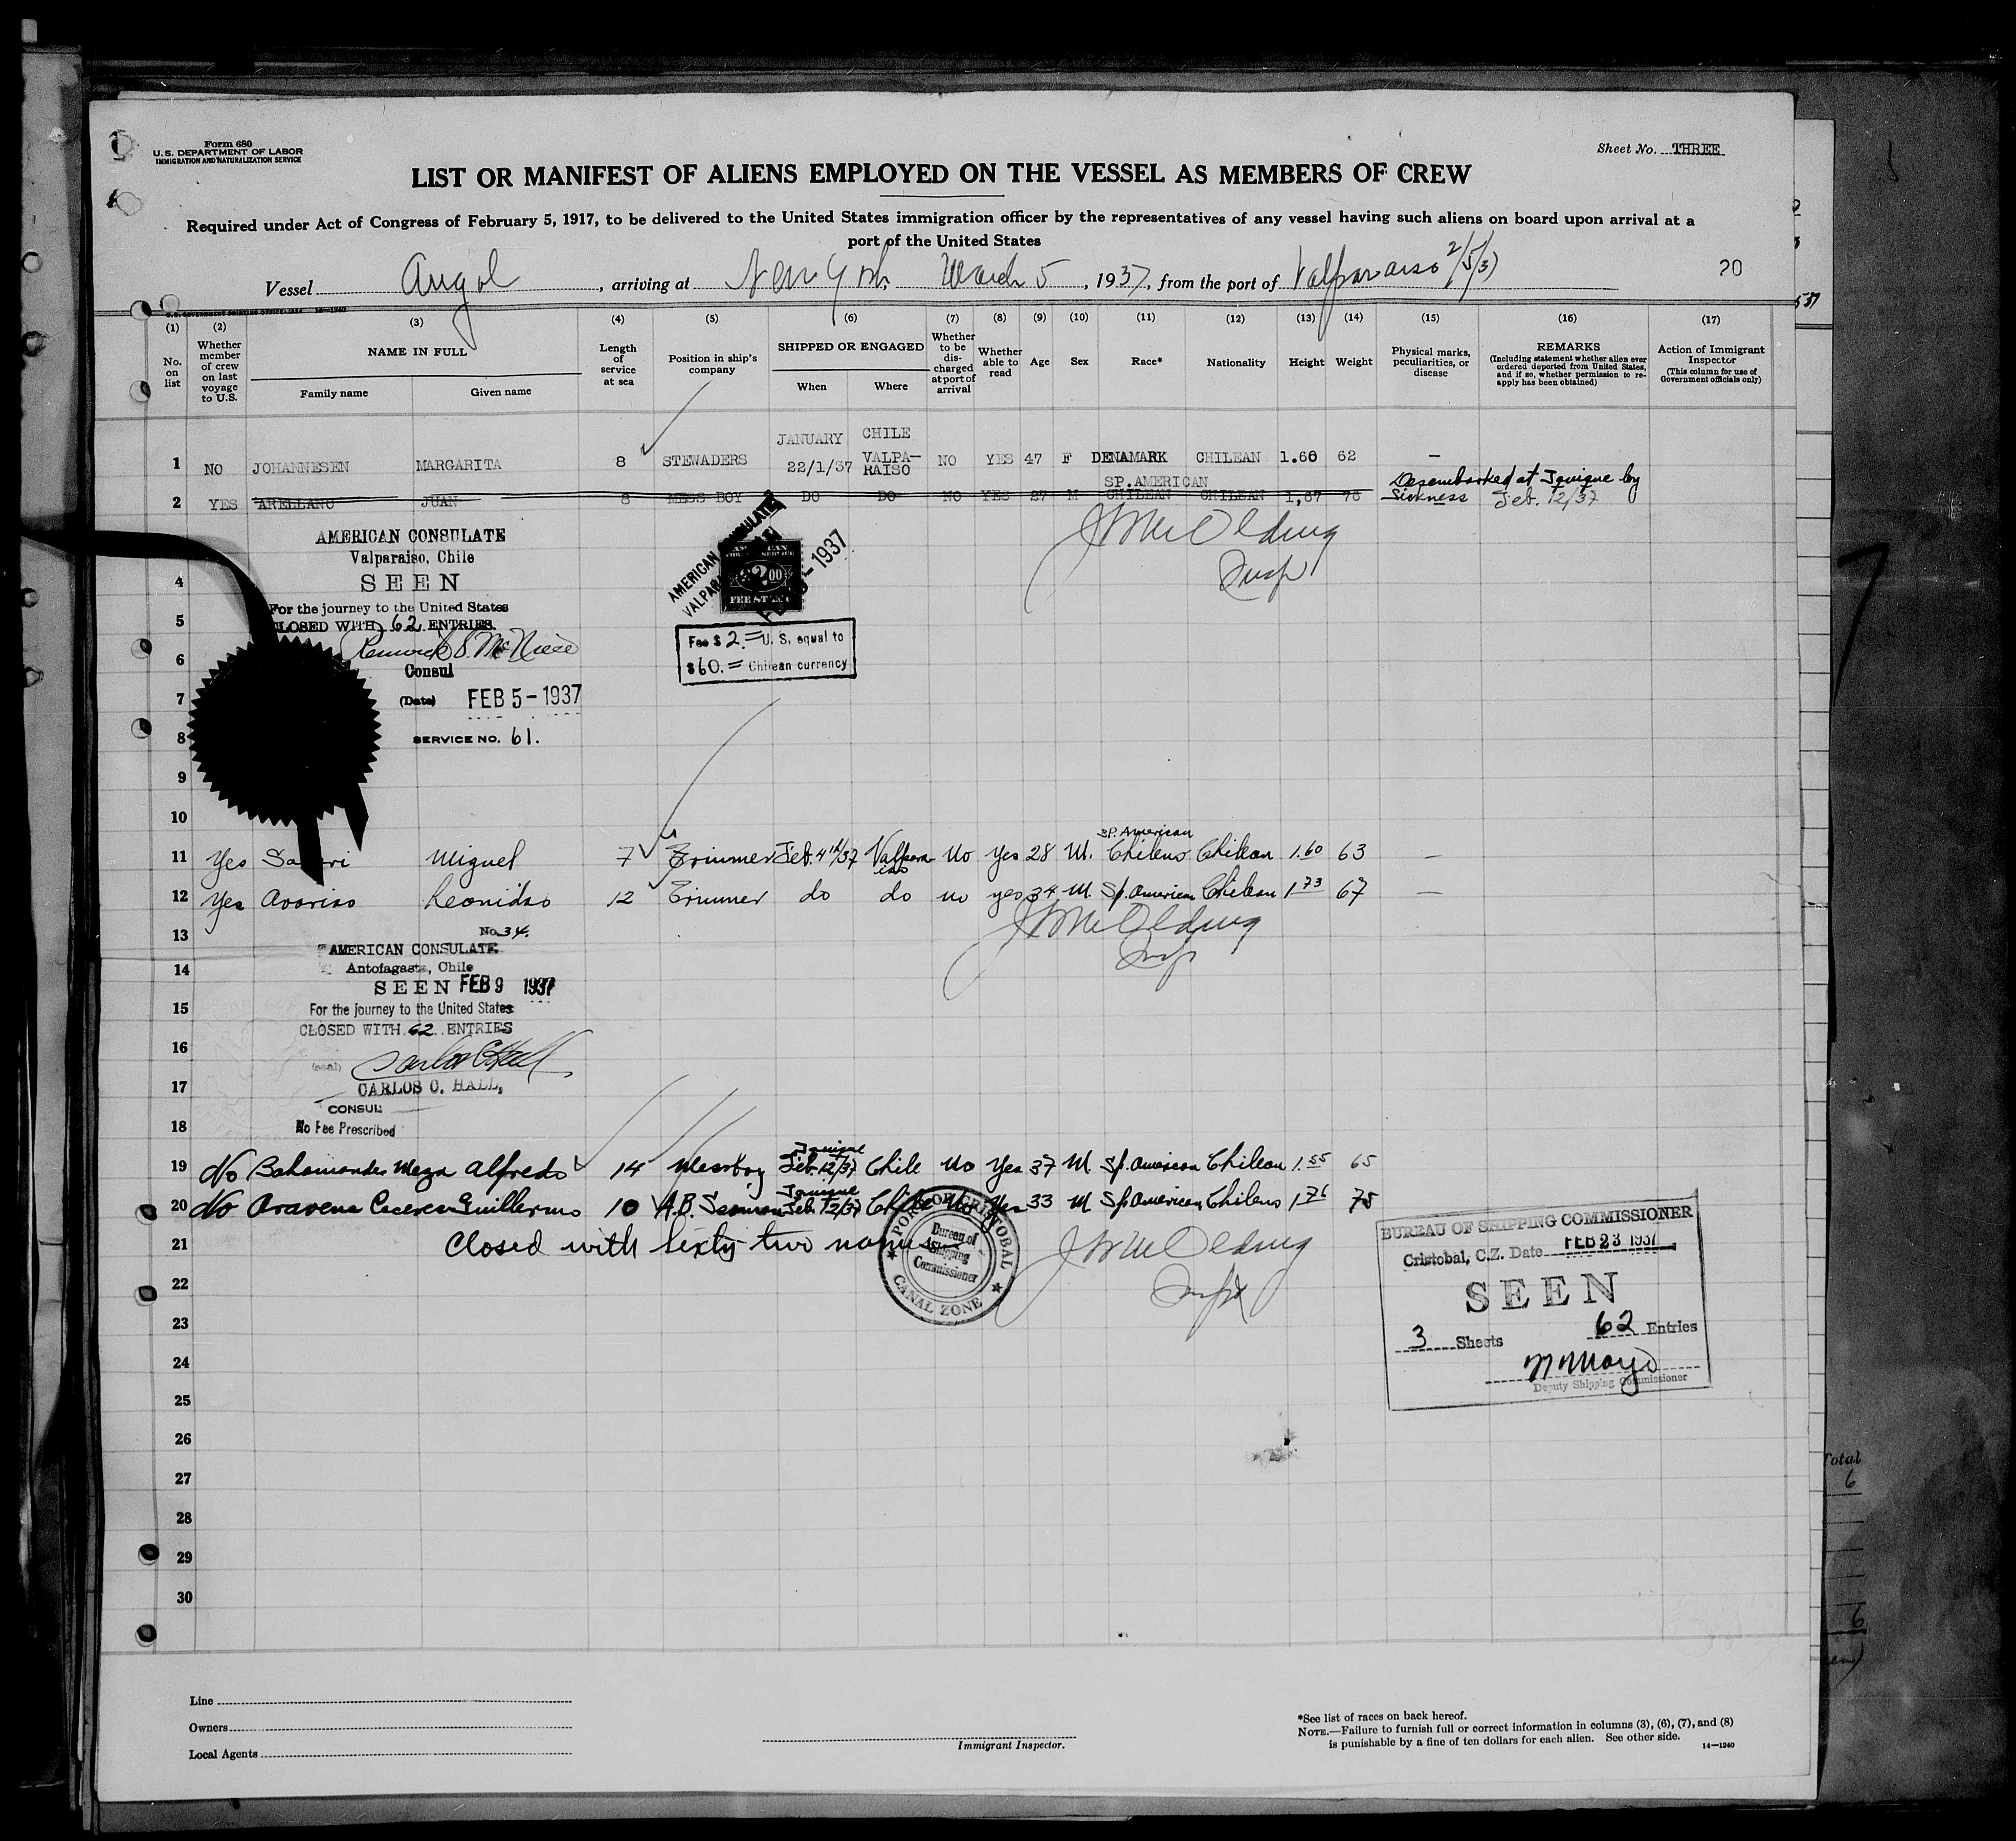 Form 680
U.S. DEPARTMENT OF LABOR
IMMIGRATION AND NATURALIZATION SERVICE
Sheet No. THREE
LIST OR MANIFEST OF ALIENS EMPLOYED ON THE VESSEL AS MEMBERS OF CREW
Required under Act of Congress of February 5, 1917, to be delivered to the United States immigration officer by the representatives of any vessel having such aliens on board upon arrival at a
port of the United States
Vessel Angol, arriving at New York, March 5, 1937, from the port of Valparaiso 2/5/37
20
(1) (2) (3) (4) (5) (6) (7) (8) (9) (10) (11) (12) (13) (14) (15) (16) (17)
No. on list
Whether member of crew on last voyage to U.S.
NAME IN FULL
Family name
Given name
Length of service at sea
Position in ship's company
SHIPPED OR ENGAGED
When
Where
Whether to be discharged at port of arrival
Whether able to read
Age
Sex
Race*
Nationality
Height
Weight
Physical marks, peculiarities, or disease
REMARKS
(Including statement whether alien ever ordered deported from United States, and if so, whether permission to reapply has been obtained)
Action of Immigrant Inspector
(This column for use of Government officials only)
JANUARY CHILE
1 NO JOHANNESEN MARGARITA 8 STEWADERS 22/1/37 VALPA-RAISO NO YES 47 F DENAMARK CHILEAN 1.60 62 —
SP.AMERICAN
2 YES ARELLANO JUAN 8 MESS BOY DO DO NO YES 27 M CHILEAN CHILEAN 1,67 76 Desembarked at Iquique by
Sickness Feb. 12/37
AMERICAN CONSULATE
Valparaiso, Chile
4 SEEN
For the journey to the United States
5 CLOSED WITH 62 ENTRIES.
6
Consul
7 (Date) FEB 5-1937
8 SERVICE NO. 61.
AMERICAN CONSULATE
$2.00
FEE STAMP
Fee $ 2.= U. S. equal to
$60.= Chilean currency
Insp
9
10
SP. American
11 Yes Miguel 7 Trimmer Feb. 4th/37 Valparaiso No Yes 28 M. Chileno Chilean 1.60 63 —
12 Yes Leonidas 12 Trimmer do do no yes 34 M Sp. American Chilean 1.73 67 —
Insp
13 No. 34.
AMERICAN CONSULATE
14 Antofagasta, Chile
SEEN FEB 9 1937
15 For the journey to the United States
CLOSED WITH 62 ENTRIES
16
(seal)
17 CARLOS C. HALL,
CONSUL
18 No Fee Prescribed
19 No Bahamondes Meza Alfredo 14 Messboy Iquique Feb. 12/37 Chile No Yes 37 M. Sp. American Chilean 1.55 65
20 No Aravena Caceres Guillermo 10 A.B. Seaman Iquique Feb. 12/37 Chile No Yes 33 M Sp. American Chileno 1.76 75
21 Closed with sixty two names
PORT OF CRISTOBAL
Bureau of
Shipping
Commissioner
CANAL ZONE
BUREAU OF SHIPPING COMMISSIONER
Cristobal, C.Z. Date FEB 23 1937
SEEN
3 Sheets 62 Entries
Deputy Shipping Commissioner
22
23
24
25
26
27
28
29
30
Total
6
6
Line
Owners
Local Agents
Immigrant Inspector.
*See list of races on back hereof.
NOTE.—Failure to furnish full or correct information in columns (3), (6), (7), and (8)
is punishable by a fine of ten dollars for each alien. See other side.
14—1240